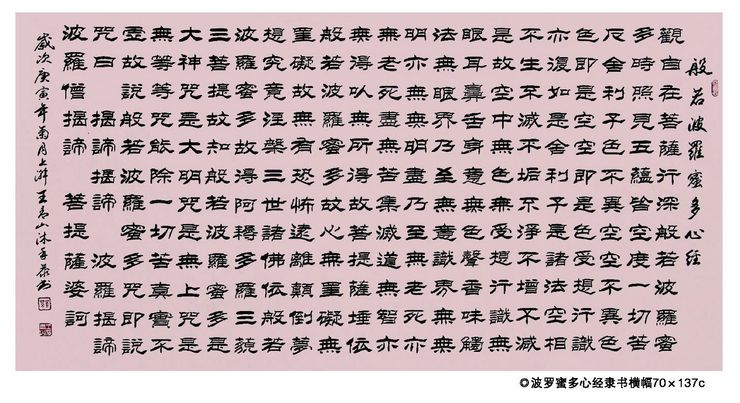 般若波羅蜜多心経
觀自在菩薩行深般若波羅蜜
多時照見五蘊皆空度一切苦
厄舍利子色不異空空不異色
色即是空空即是色受想行識
亦復如是舍利子是諸法空相
不生不滅不垢不淨不增不減
是故空中無色無受想行識無
眼耳鼻舌身意無色聲香味觸
法無眼界乃至無意識界無無
明亦無無明盡乃至無老死亦
無老死盡無苦集滅道無智亦
無得㕥無所得故菩提薩埵依
般若波羅蜜多故心無罣礙無
罣礙故無有恐怖遠離顛倒夢
想究竟涅槃三世諸佛依般若
波羅蜜多故得阿耨多羅三藐
三菩提故知般若波羅蜜多是
大神咒是大明咒是無上咒是
無等等咒能除一切苦真實不
虛故說般若波羅蜜多咒即說
咒曰 揭諦揭諦 波羅揭諦
波羅僧揭諦 菩提薩婆訶
歲次庚寅年菊月上浣王山沐手恭書
©波罗蜜多心经隶书横幅70×137c